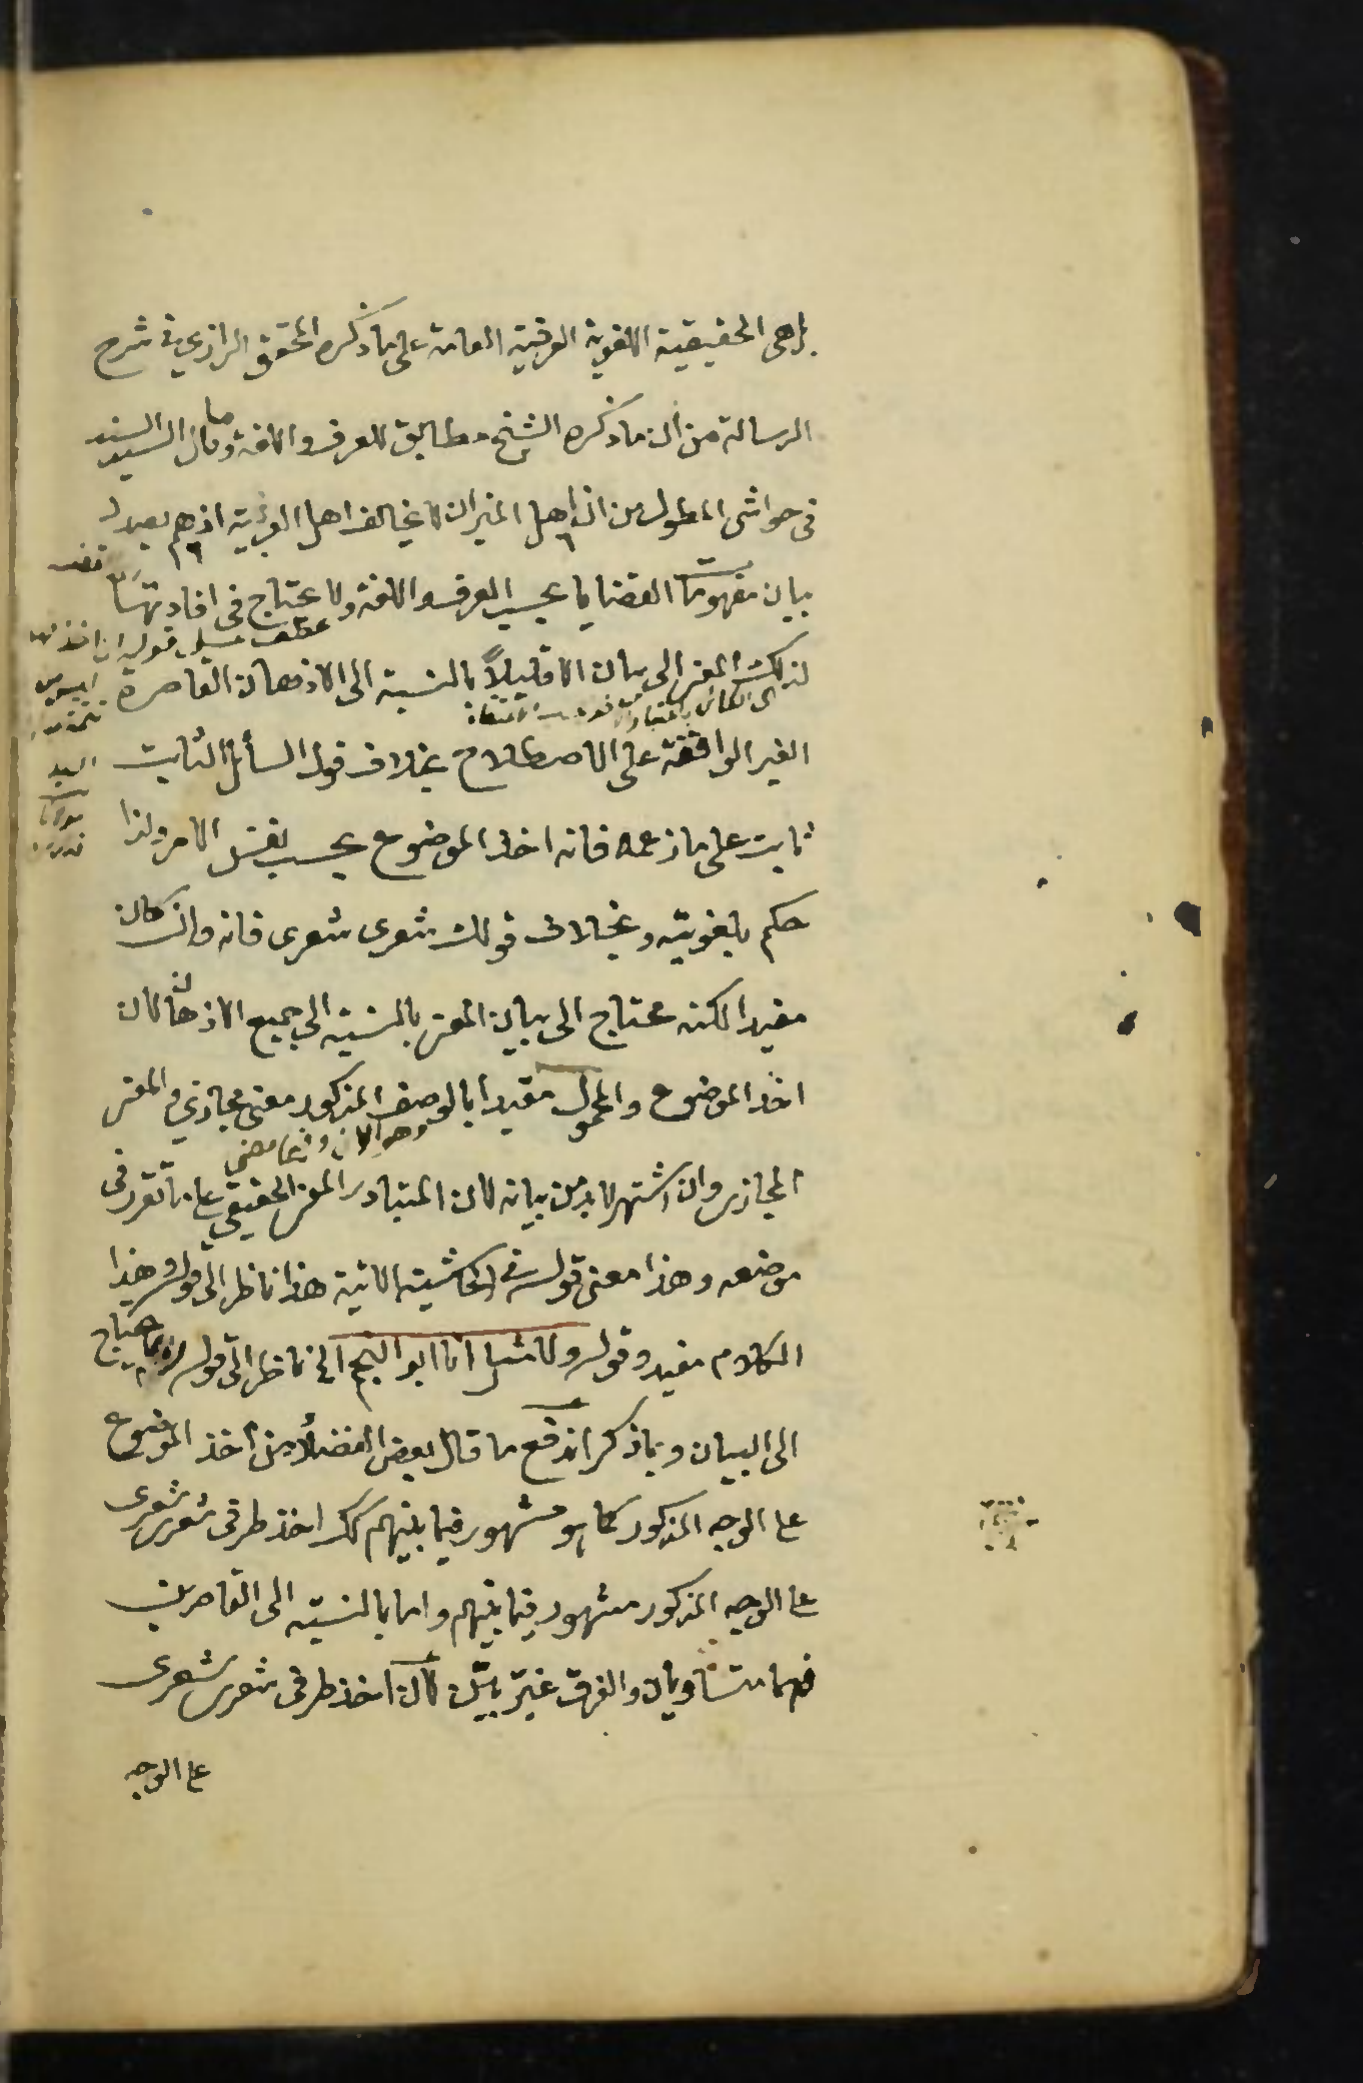 بل هي الحقيقية اللغوية العرفية العامة على ما ذكره المحقق الرازي في شرح
الرسالة من أن ما ذكره الشيخ مطابق للعرف واللغة وما قال السيد السند
في حواشي المطول من ان اهل الميزان لا يخالف اهل العربية اذ هم بصدد
بيان مفهومات القضايا بحسب العرف واللغة ولا يحتاج في افادتها
لذلك المعنى الى بيان الا قليلاً بالنسبة الى الاذهان القاصرة
الغير الواقفة على الاصطلاح بخلاف قول السائل الثابت
ثابت على ما زعمه فانه اخذ الموضوع بحسب نفس الامر ولذا
حكم بلغويته وبخلاف قولك شعري شعري فانه وان كان
مفيدا لكنه محتاج الى بيان المعنى بالنسبة الى جميع الاذهان لان
اخذ الموضوع والمحمول مقيدا بالوصف المذكور معنى مجازي والمعنى
وهو الآن وفيما مضى
المجازي وان اشتهر لا بد من بيانه لان المتبادر المعنى الحقيقي على ما تقرر في
موضعه وهذا معنى قوله في الحاشية الاتية هذا ناظر الى قوله وهذا
الكلام مفيد وقوله ولا مثل انا ابو النجم الخ ناظر الى قوله ربما يحتاج
الى البيان وبما ذكر اندفع ما قال بعض الفضلاء من أخذ الموضوع
على الوجه المذكور كما هو مشهور فيما بينهم كك اخذ طرفي شعري شعري
على الوجه المذكور مشهور فيما بينهم واما بالنسبة الى القاصرين
فهما متساويان والفرق غير بيّن لان اخذ طرفي شعري شعري
على الوجه